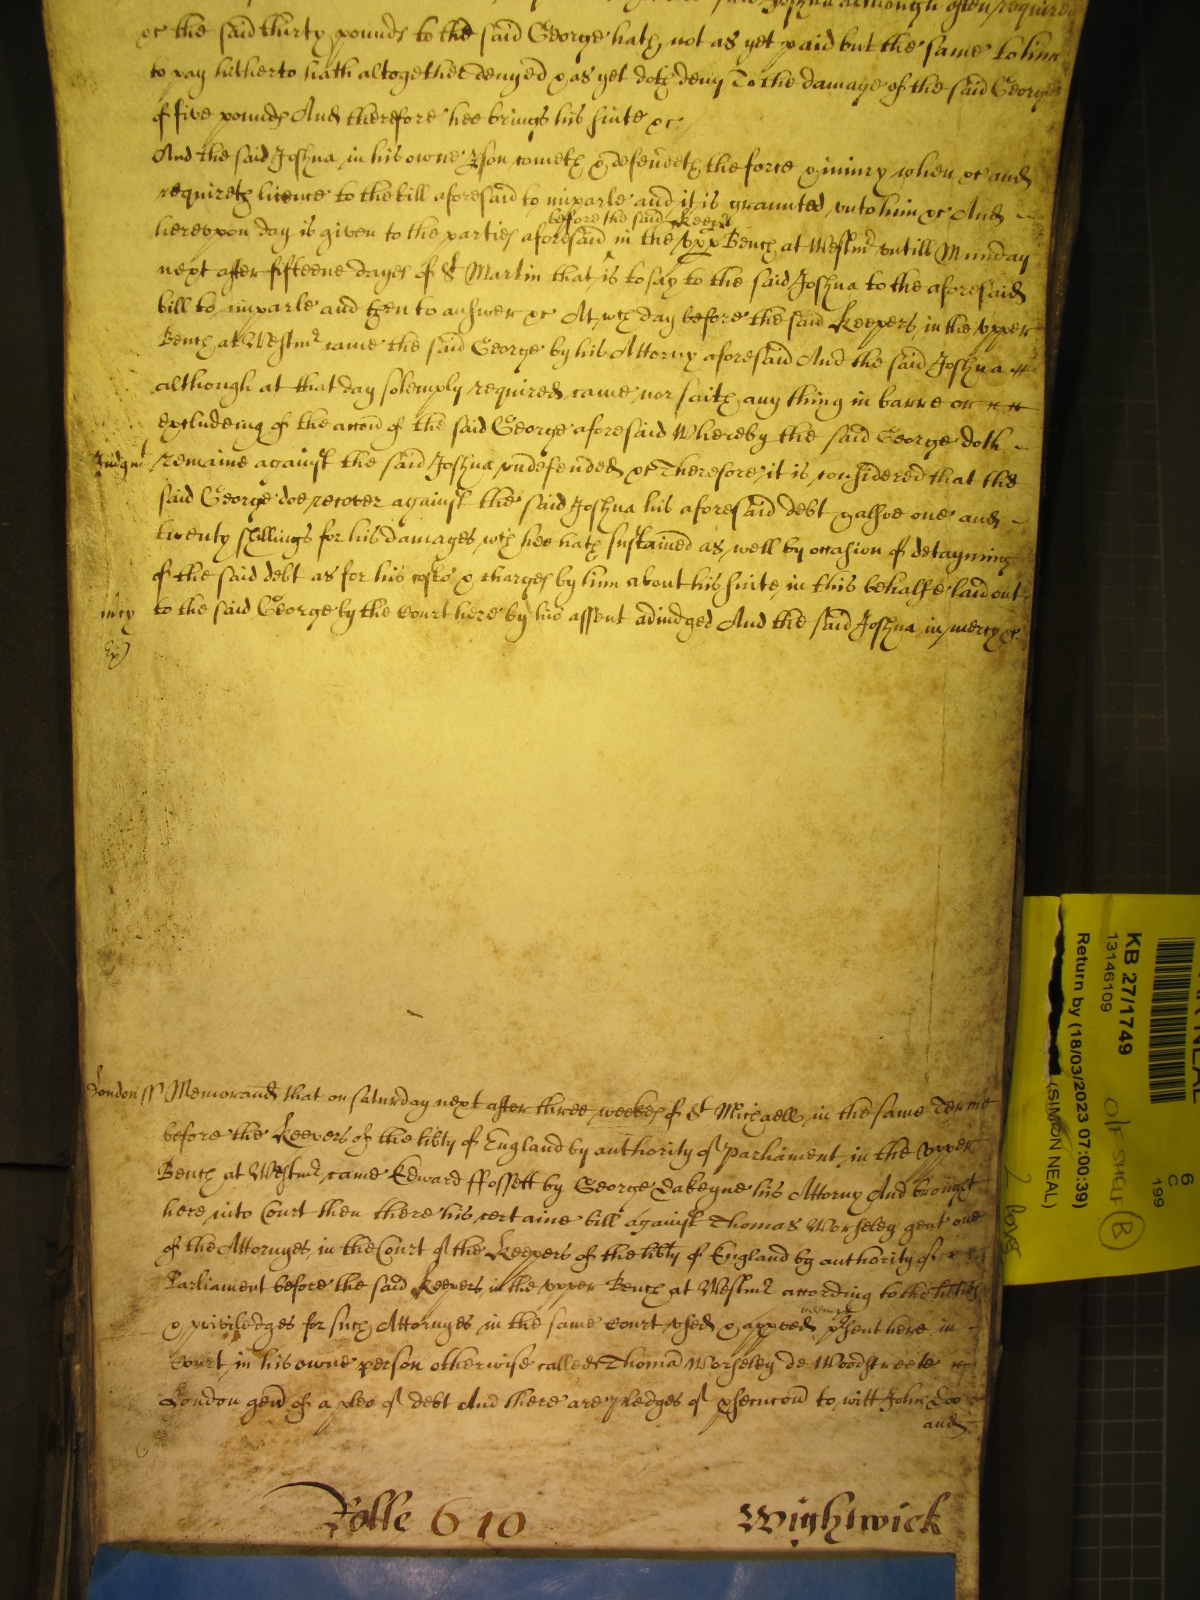 said Joshua although often required
&c the said thirty pounds to the said George hath not as yet paid but the same to him
to pay hitherto hath altogether denyed & as yet doth deny To the damage of the said George
of five pounds And therefore hee brings his suite &c
And the said Joshua in his owne pson cometh & defendeth the force & iniury when &c and
requireth licence to the bill aforesaid to imparle and it is graunted vnto him &c And
before the said Keeps
herevpon day is given to the parties aforesaid in the vpp Bench at Westmr vntill Munday
next after fifteene dayes of St Martin that is to say to the said Joshua to the aforesaid
bill to imparle and then to answer &c At wch day before the said Keepers in the vpper
Bench at Westmr came the said George by his Attorny aforesaid And the said Joshua
although at that day solemply required came nor saith any thing in barre or
excludeing of the accon of the said George aforesaid Whereby the said George doth
Judgmt remaine against the said Joshua vndefended &c Therefore it is considered that the
said George doe recover against the said Joshua his aforesaid debt & alsoe one and
twenty shillings for his damages wch hee hath sustained as well by occasion of detayning
of the said debt as for his costs & charges by him about his suite in this behalfe laid out
mcy to the said George by the Court here by his assent adiudged And the said Joshua in mercy &c
London ss Memorand that on Saturday next after three weekes of St Michaell in the same Terme
before the Keepers of the libty of England by authority of parliament in the vpper
Bench at Westmr came Edward ffossett by George Dakeyne his Attorny And brought
here into Court then there his certaine bill against Thomas Worseley gent one
of the Attornyes in the Court of the Keepers of the libty of England by authority of
Parliament before the said Keepers in the vpper Bench at Westmr according to the libties
& priviledges for such Attornyes in the same Court vsed & appved being psent here in
Court in his owne person otherwise called Thomas Worseley de Woodstreete
London gen of a plea of debt And there are pledges of psecucon to witt John Doo
and
Rolle 610 Wightwick
KB 27/1749
13146109
Return by (18/03/2023 07:00:39)
(SIMON NEAL)
6
C
199
B
2 boxes